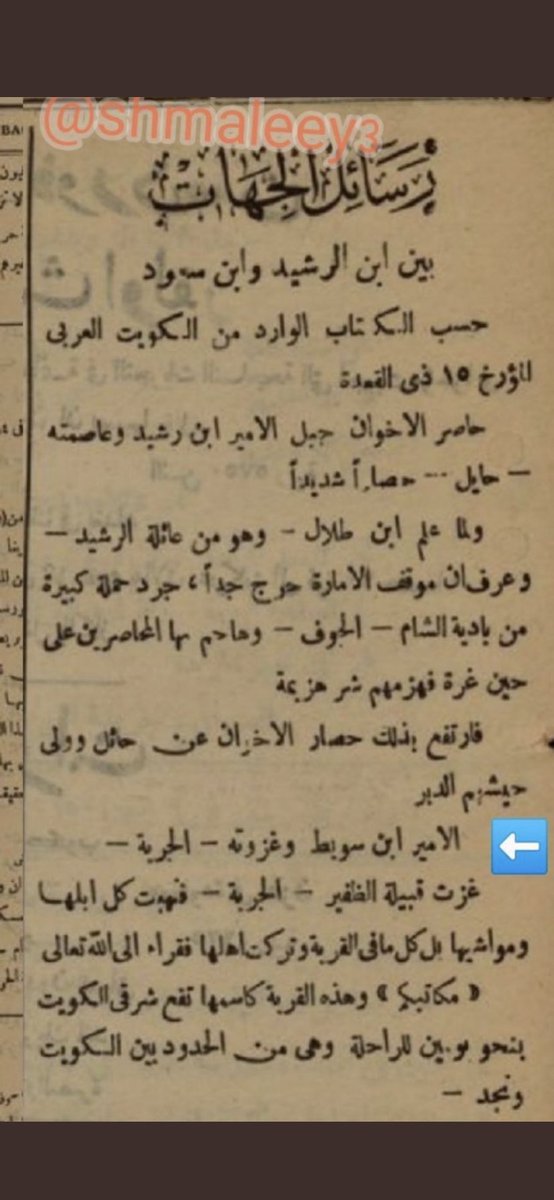 @shmaleey3
رسائل الجهات
بين ابن الرشيد وابن سعود
حسب الكتاب الوارد من الكويت العربى
المؤرخ ١٥ ذى القعدة
حاصر الاخوان جبل الامير ابن رشيد وعاصمته
— حايل — حصاراً شديداً
ولما علم ابن طلال — وهو من عائلة الرشيد —
وعرف ان موقف الامارة حرج جداً ، جرد حملة كبيرة
من بادية الشام — الجوف — وهاجم بها المحاصرين على
حين غرة فهزمهم شر هزيمة
فارتفع بذلك حصار الاخوان عن حائل وولى
جيشهم الدبر
الامير ابن سويط وغزوته — الجرية —
غزت قبيلة الظفير — الجرية — فنهبت كل ابلها
ومواشيها بل كل مافى القرية وتركت اهلها فقراء الى الله تعالى
« مكاتبكم » وهذه القرية كاسمها تقع شرقى الكويت
بنحو يومين للراحلة وهى من الحدود بين الكويت
ونجد —